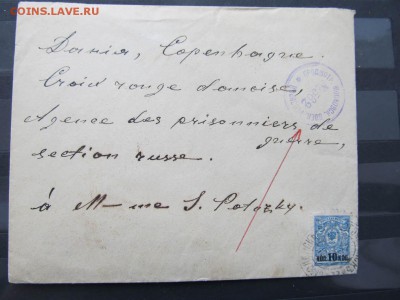 COINS.LAVE.RU
Данія, Copenhague.
Croix rouge danoise,
Agence des prisonniers de
guerre,
section russe.
à M-me S. Potozky.
коп. 10 коп.